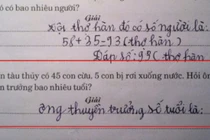 đó có bao nhiêu người?
Giải
xội thợ hàn đó có số người là:
58 + 35 = 93 (thợ hàn)
Đáp số: 93 thợ hàn
n tàu thủy có 45 con cừu. 5 con bị rơi xuống nước. Hỏi ôn
n trưởng bao nhiêu tuổi?
Giải
ông thuyền trưởng số tuổi là: